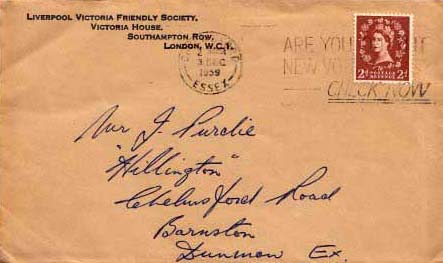 LIVERPOOL VICTORIA FRIENDLY SOCIETY,
VICTORIA HOUSE,
SOUTHAMPTON ROW,
LONDON, W.C.1.
3 DEC
1959
ESSEX
ARE YOU
NEW
CHECK NOW
2d POSTAGE REVENUE 2d
Mr J. Purdie
"Hillington"
Chelmsford Road
Barnston
Dunmow Ex.